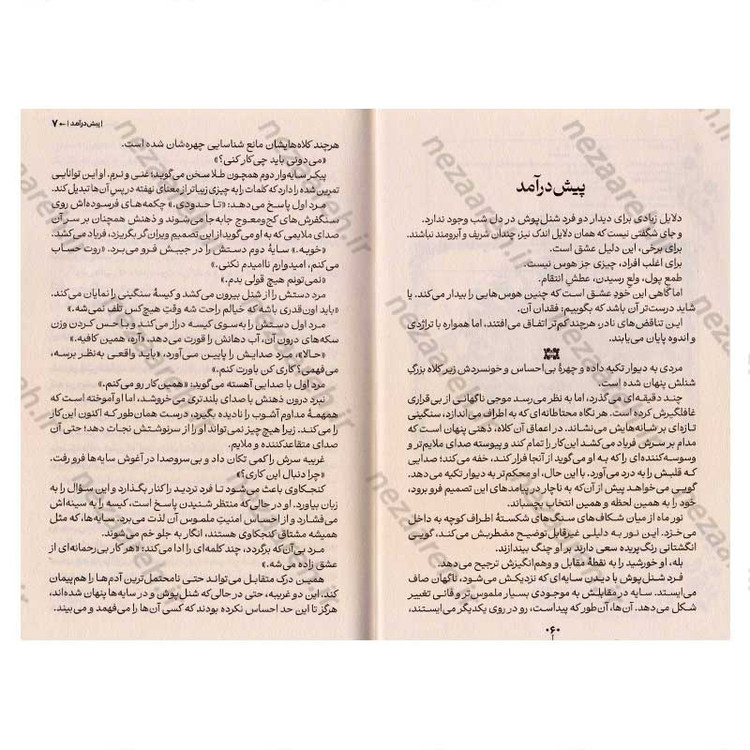 پیش‌درآمد
دلایل زیادی برای دیدار دو فرد شنل‌پوش در دل شب وجود ندارد.
و جای شگفتی نیست که همان دلایل اندک نیز، چندان شریف و آبرومند نباشند.
برای برخی، این دلیل عشق است.
برای اغلب افراد، چیزی جز هوس نیست.
طمع پول، ولع رسیدن، عطش انتقام.
اما گاهی این خودِ عشق است که چنین هوس‌هایی را بیدار می‌کند. یا
شاید درست‌تر آن باشد که بگوییم: فقدان آن.
این تناقض‌های نادر، هرچند کم‌تر اتفاق می‌افتند، اما همواره با تراژدی
و اندوه پایان می‌یابند.
مردی به دیوار تکیه داده و چهرهٔ بی‌احساس و خونسردش زیر کلاه بزرگِ
شنلش پنهان شده است.
چند دقیقه‌ای می‌گذرد، اما به نظر می‌رسد موجی ناگهانی از بی‌قراری
غافلگیرش کرده است. هر نگاه محتاطانه‌ای که به اطراف می‌اندازد، سنگینی
تازه‌ای بر شانه‌هایش می‌نشاند. در اعماق آن کلاه، ذهنی پنهان است که
مدام بر سرش فریاد می‌کشد این کار را تمام کند و پیوسته صدای ملایم‌تر و
وسوسه‌کننده‌ای را که به او می‌گوید از آنجا فرار کند، خفه می‌کند؛ صدایی
که قلبش را به درد می‌آورد. با این حال، او محکم‌تر به دیوار تکیه می‌دهد.
گویی می‌خواهد پیش از آن‌که به ناچار در پیامدهای این تصمیم فرو برود،
خود را به همین لحظه و همین انتخاب بچسباند.
نور ماه از میان شکاف‌های سنگ‌های شکستهٔ اطراف کوچه به داخل
می‌خزد. این نور به دلیلی غیرقابل‌توضیح مضطربش می‌کند، گویی
انگشتانی رنگ‌پریده سعی دارند بر او چنگ بیندازند.
بله، او خورشید را به نقطهٔ مقابل و وهم‌انگیزش ترجیح می‌دهد.
فرد شنل‌پوش با دیدن سایه‌ای که نزدیکش می‌شود، ناگهان صاف
می‌ایستد. سایه در مقابلش به موجودی بسیار ملموس‌تر و فانی تغییر
شکل می‌دهد. آن‌ها، آن‌طور که پیداست، رو در روی یکدیگر می‌ایستند،
۶
| پیش‌درآمد | ۷
هرچند کلاه‌هایشان مانع شناسایی چهره‌شان شده است.
«می‌دونی باید چی‌کار کنی؟»
پیکر سایه‌وار دوم همچون طلا سخن می‌گوید؛ غنی و نرم. او این توانایی
تمرین شده را دارد که کلمات را به چیزی زیباتر از معنای نهفته در پسِ آن‌ها تبدیل کند.
مرد اول پاسخ می‌دهد: «تا حدودی.» چکمه‌های فرسوده‌اش روی
سنگفرش‌های کج‌ومعوج جابه‌جا می‌شوند و ذهنش همچنان بر سر آن
صدای ملایمی که به او می‌گوید از این تصمیم ویران‌گر بگریزد، فریاد می‌کشد.
«خوبه.» سایهٔ دوم دستش را در جیبش فرو می‌برد. «روت حساب
می‌کنم، امیدوارم ناامیدم نکنی.»
«نمی‌تونم هیچ قولی بدم.»
مرد دستش را از شنل بیرون می‌کشد و کیسهٔ سنگینی را نمایان می‌کند.
«باید اون‌قدری باشه که خیالم راحت شه وقتِ هیچ‌کس تلف نمی‌شه.»
مرد اول دستش را به‌سوی کیسه دراز می‌کند و با حس کردن وزن
سکه‌های درون آن، آب دهانش را قورت می‌دهد. «آره، همین کافیه.»
«حالا»، مرد صدایش را پایین می‌آورد، «باید واقعی به‌نظر برسه،
می‌فهمی؟ کاری کن باورت کنیم.»
مرد اول با صدایی آهسته می‌گوید: «همین کار رو می‌کنم.»
نبرد درون ذهنش با صدای بلندتری می‌خروشد، اما او آموخته است که
همهمهٔ مداوم آشوب را نادیده بگیرد، درست همان‌طور که اکنون این کار
را می‌کند. زیرا هیچ‌چیز نمی‌تواند او را از سرنوشتش نجات دهد؛ حتی آن
صدای متقاعدکننده و ملایم.
غریبه سرش را کمی تکان داد و بی‌سروصدا در آغوش سایه‌ها فرو رفت.
«چرا دنبال این کاری؟»
کنجکاوی باعث می‌شود تا فرد تردید را کنار بگذارد و این سؤال را به
زبان بیاورد. او در حالی‌که منتظر شنیدن پاسخ است، کیسه را به سینه‌اش
می‌فشارد و از احساس امنیتِ ملموس آن لذت می‌برد. سایه‌ها، که مثل
همیشه مشتاق کنجکاوی هستند، انگار به جلو خم می‌شوند.
مرد بی‌آن‌که برگردد، چند کلمه‌ای را ادا می‌کند: «هر کار بی‌رحمانه‌ای از
عشق زاده می‌شه.»
همین درک متقابل می‌تواند حتی نامحتمل‌ترین آدم‌ها را هم‌پیمان
کند. این دو غریبه، حتی در حالی که شنل‌پوش و در سایه‌ها پنهان شده‌اند،
هرگز تا این حد احساس نکرده بودند که کسی آن‌ها را می‌فهمد و می‌بیند.
nezaareh.ir